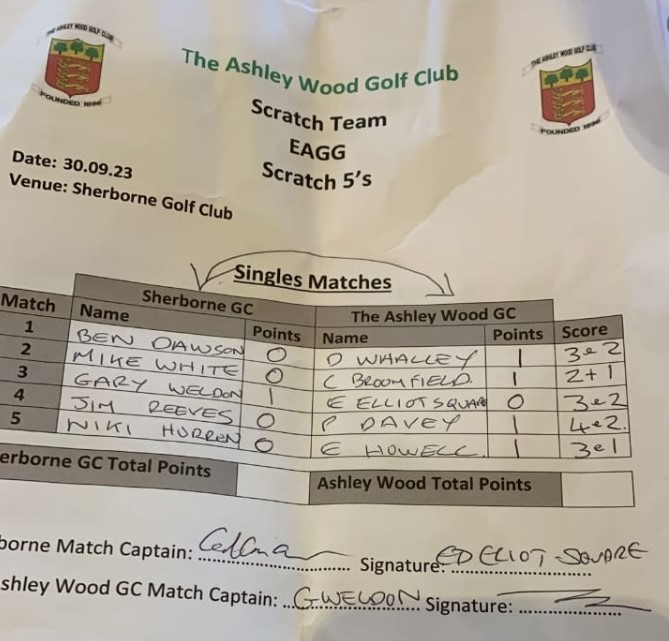 THE ASHLEY WOOD GOLF CLUB
THE ASHLEY WOOD GOLF CLUB
The Ashley Wood Golf Club
Scratch Team
EAGG
Scratch 5's
Date: 30.09.23
Venue: Sherborne Golf Club
Singles Matches
Sherborne GC The Ashley Wood GC
Match Name Points Name Points Score
1 BEN DAWSON 0 D WHALLEY 1 3e2
2 MIKE WHITE 0 C BROOMFIELD. 1 2+1
3 GARY WELDON 1 E ELLIOT SQUAR 0 3e2
4 JIM REEVES 0 P DAVEY 1 4e2.
5 NIKI HURREN 0 E HOWELL. 1 3e1
erborne GC Total Points Ashley Wood Total Points
borne Match Captain: Signature: ED ELIOT-SQUARE
shley Wood GC Match Captain: GWELDON Signature: